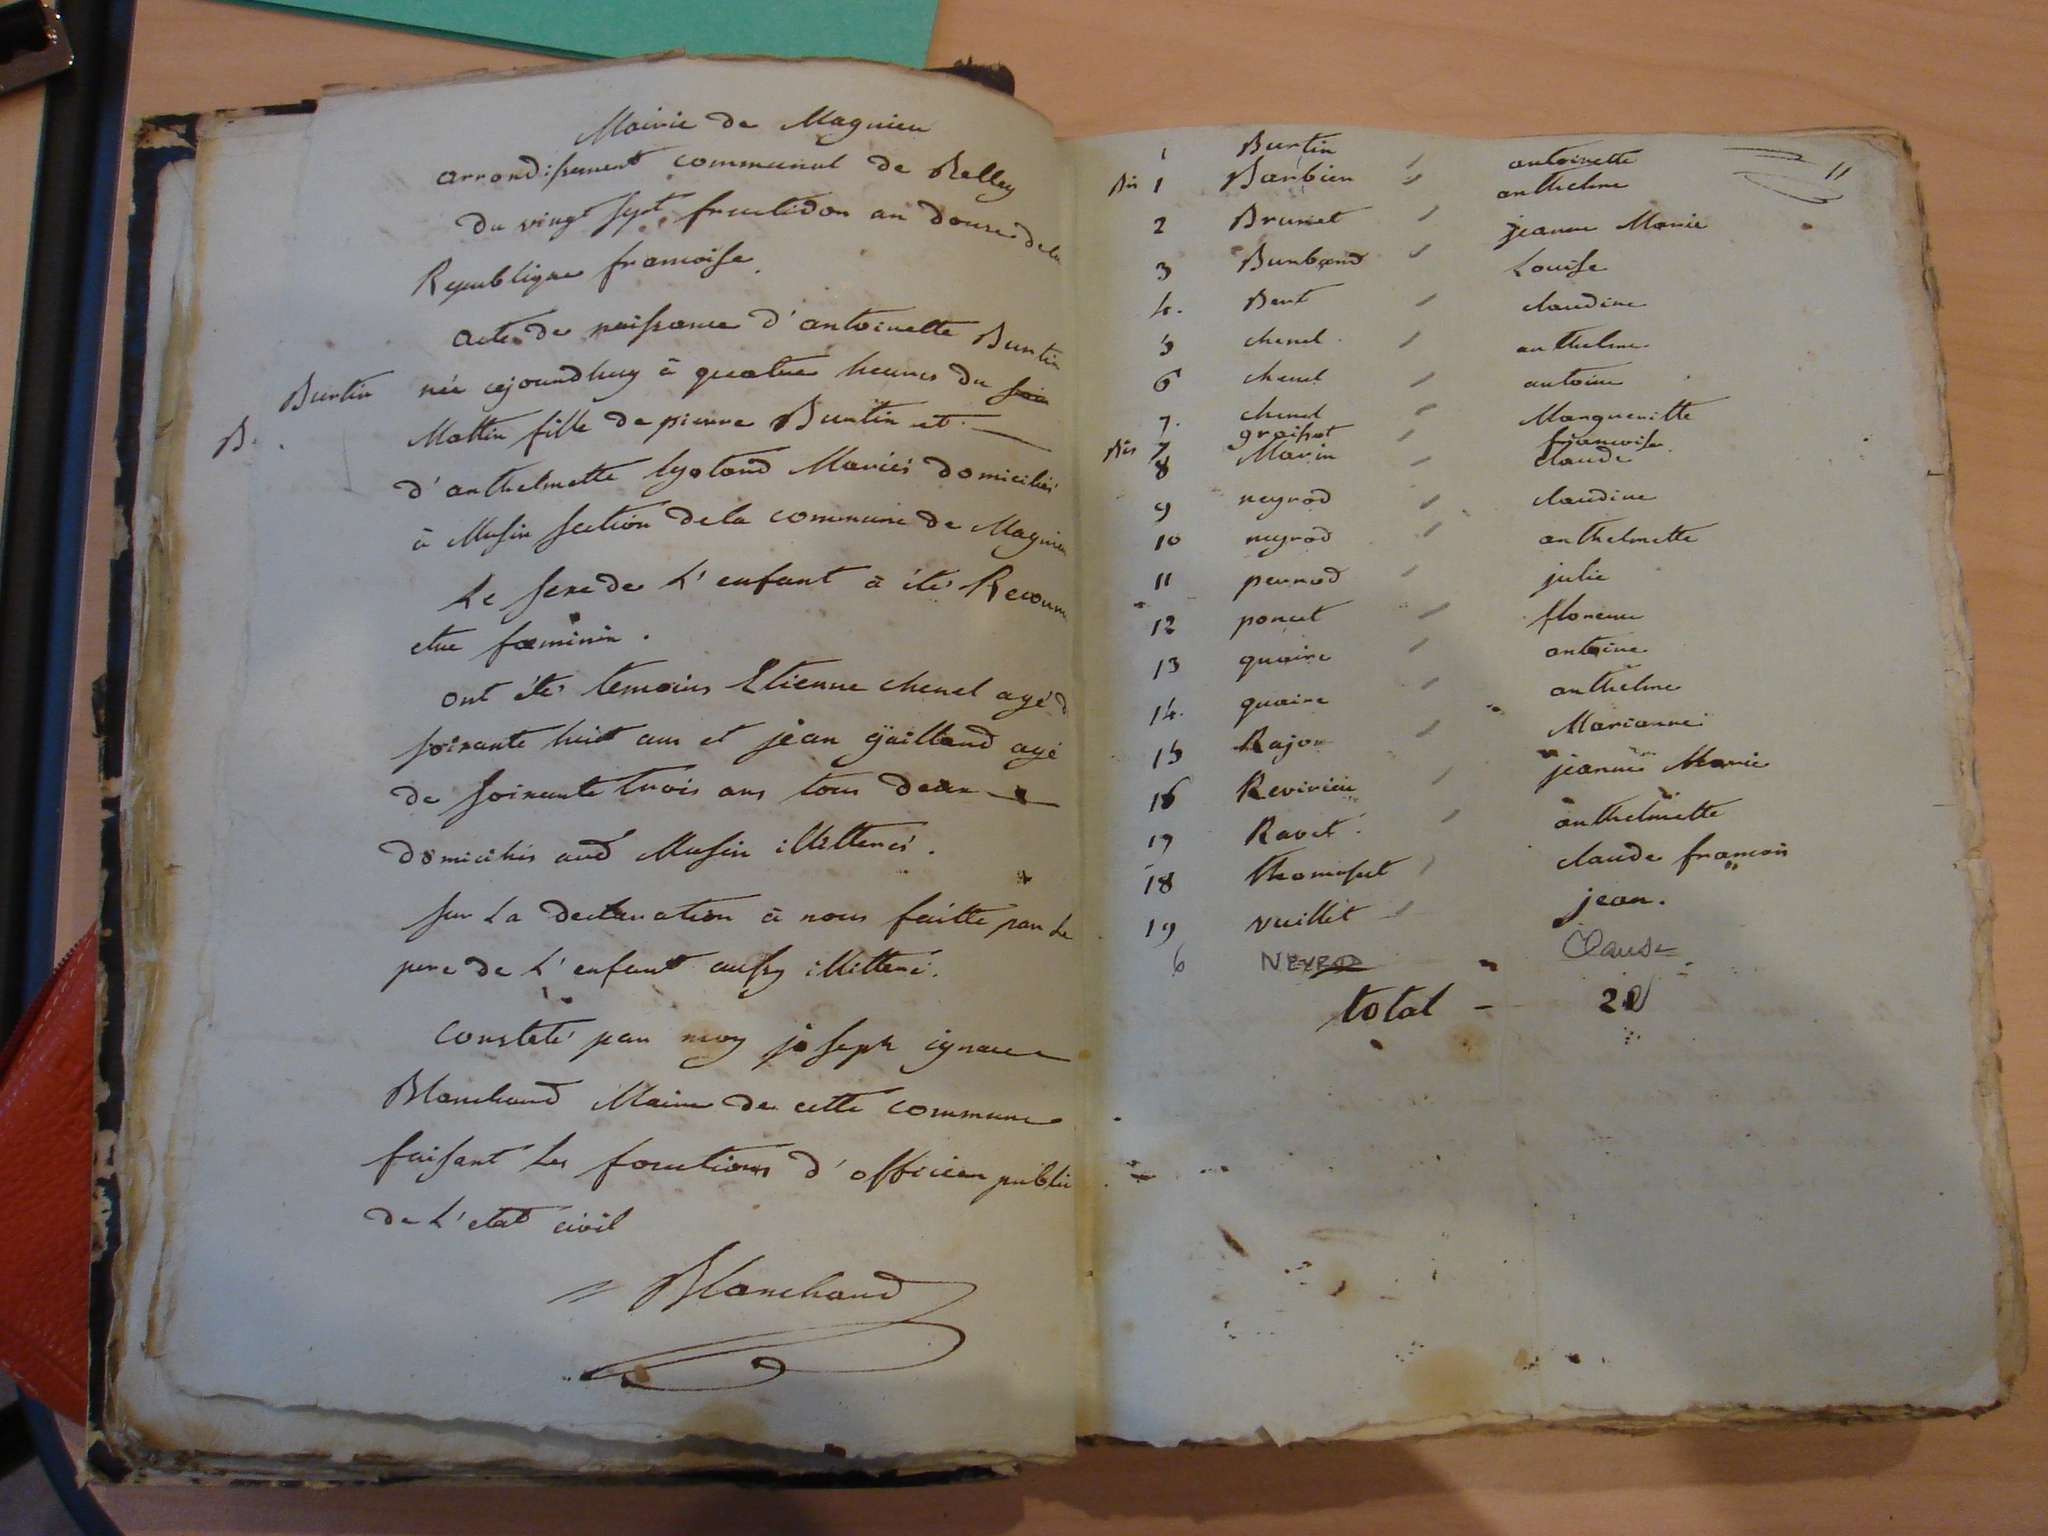 Mairie de Magnieu
arrondissement communal de Belley
du vingt sept fructidor an douze de la
Republique francoise
acte de naissance d'antoinette Burtin
Burtin née cejourdhuy à quatre heures du
B.
Mattin fille de pierre Burtin et
d'anthelmette Mariés domiciliés
à Musin section de la commune de Magnieu
Le sexe de L'enfant à été Reconnu
etre fœminin.
ont été temoins Etienne chenel agé d
soixante huit ans et jean gaillard agé
de soixante trois ans tous deux
domiciliés aud Musin illitterés.
sur La declaration à nous faitte par Le
pere de L'enfant aussy illitteré.
Constaté par moy joseph ignace
Blanchard Maire de cette commune
faisant Les fonctions d'officier public
de L'etat civil
Blanchard
1 Burtin antoinette 11
Bis 1 Barbier anthelme
2 Brunet jeanne Marie
3 Burband Louise
4. Bert claudine
5 chenel anthelme
6 chenel antoine
7. chenel Margueritte
Bis 7 groisat francoise
8 Marin claude
9 neyrod claudine
10 neyrod anthelmette
11 perrod julie
12 poncet florence
13 quaire antoine
14. quaire anthelme
15 Rajon Marianne
16 Revirieu jeanne Marie
17 Ravet anthelmette
18 thomasset claude francois
19 vuillet jean.
6 NEYROD Clause
total - 21